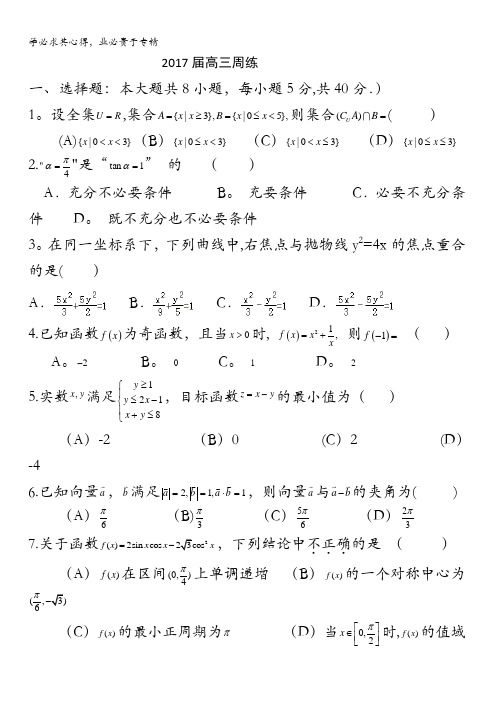 学必求其心得,业必贵于专精
2017届高三周练
一、选择题:本大题共8小题,每小题5分,共40分.)
1。设全集U=R,集合A={x|x≥3},B={x|0≤x<5},则集合(C_U A)∩B=( )
(A){x|0<x<3}(B){x|0≤x<3} (C){x|0<x≤3} (D){x|0≤x≤3}
2."α=π/4"是“tanα=1” 的 ( )
A.充分不必要条件 B。 充要条件 C.必要不充分条
件 D。 既不充分也不必要条件
3。在同一坐标系下,下列曲线中,右焦点与抛物线y²=4x的焦点重合
的是( )
A.5x²/3+5y²/2=1 B.x²/9+y²/5=1 C.x²/3-y²/2=1 D.5x²/3-5y²/2=1
4.已知函数f(x)为奇函数,且当x>0时, f(x)=x²+1/x, 则f(-1)= ( )
A。-2 B。 0 C。 1 D。 2
5.实数x,y满足{y≥1 y≤2x-1 x+y≤8,目标函数z=x-y的最小值为( )
(A)-2 (B)0 (C)2 (D)
-4
6.已知向量a,b满足|a|=2,|b|=1,a·b=1,则向量a与a-b的夹角为( )
(A)π/6 (B)π/3 (C)5π/6 (D)2π/3
7.关于函数f(x)=2sin x cos x-2√3cos²x,下列结论中不正确的是 ( )
(A)f(x)在区间(0,π/4)上单调递增 (B)f(x)的一个对称中心为
(π/6,-√3)
(C)f(x)的最小正周期为π (D)当x∈[0,π/2]时,f(x)的值域